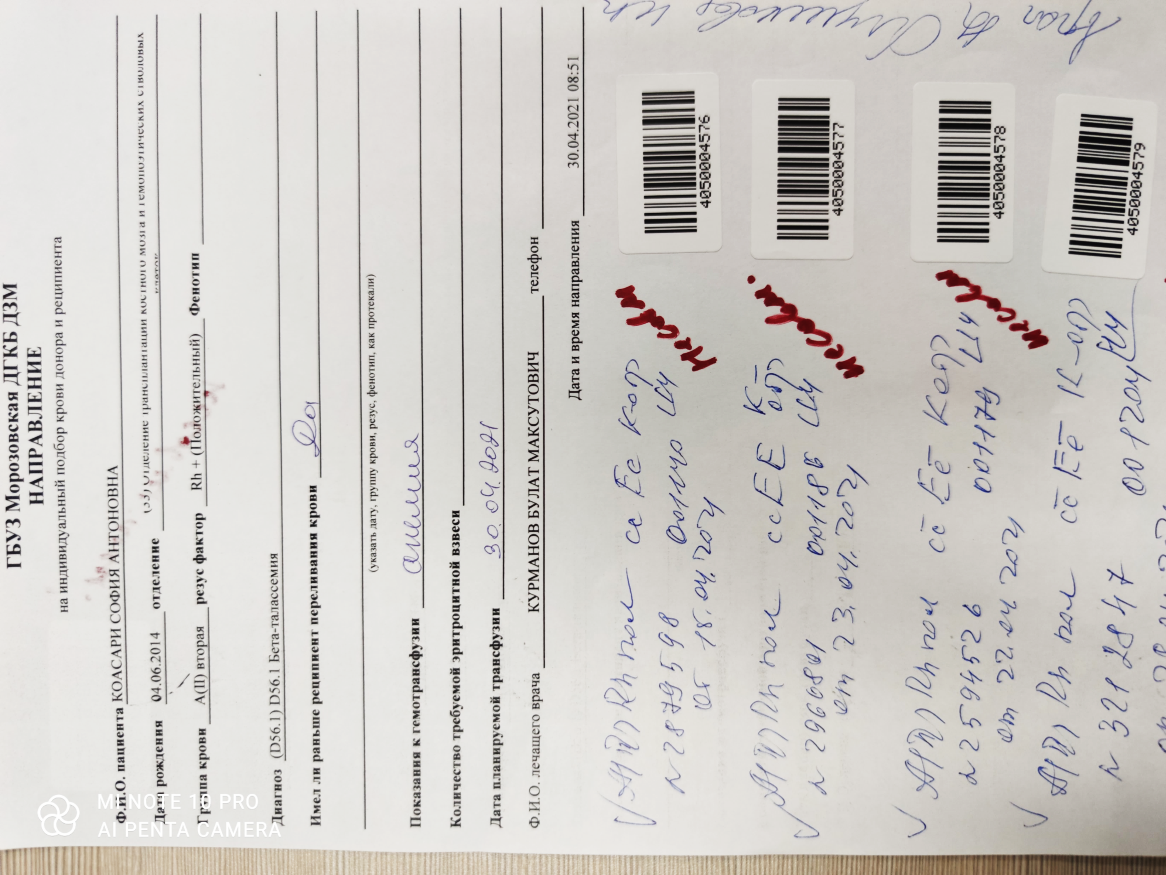 ГБУЗ Морозовская ДГКБ ДЗМ
НАПРАВЛЕНИЕ
на индивидуальный подбор крови донора и реципиента
Ф.И.О. пациента КОАСАРИ СОФИЯ АНТОНОВНА
Дата рождения 04.06.2014 отделение (33) Отделение трансплантации костного мозга и гемопоэтических стволовых
клеток
Группа крови A(II) вторая резус фактор Rh + (Положительный) Фенотип
Диагноз (D56.1) D56.1 Бета-талассемия
Имел ли раньше реципиент переливания крови Да
(указать дату, группу крови, резус, фенотип, как протекали)
Показания к гемотрансфузии анемия
Количество требуемой эритроцитной взвеси
Дата планируемой трансфузии 30.04.2021
Ф.И.О. лечащего врача КУРМАНОВ БУЛАТ МАКСУТОВИЧ телефон
Дата и время направления 30.04.2021 08:51
A(II) Rh пол cc Ee K отр
N 2879598 001140
От 18.04.2021
4050004576
A(II) Rh пол cc EE K отр
N 2966801 001186
от 23.04.2021
4050004577
A(II) Rh пол cc Ee K отр
N 2594526 001179
от 22.04.2021
4050004578
A(II) Rh пол cc Ee K-отр
N 3212847 001204
4050004579
MI NOTE 10 PRO
AI PENTA CAMERA